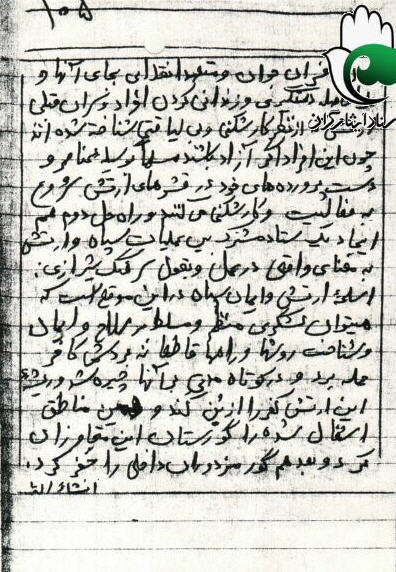 ۱۰۵
افسران جوان و متعهد انقلابی بجای آنها و
دستگیری و زندانی کردن افراد و سران قبلی
ارتشی از نظر کارشکنی و بی لیاقتی شناخته شده اند
چون این افراد اگر آزاد باشند مسلماً بوسیله عناصر و
دست پرورده های خود در قشرهای ارتشی شروع
به فعالیت و کارشکنی می کنند و راه حل دوم هم
ایجاد یک ستاد مشترک بین عملیات سپاه و ارتش
به معنای واقعی در عمل و بقول سرهنگ شیرازی:
اسلحه ارتش و ایمان سپاه در این موقع است که
میتوان لشکری منظم و مسلط بر سلاح و ایمان
و شناخت روشها و راهها قاطعانه بر دشمن کافر
حمله برد و در کوتاه مدتی بر آنها چیره شد و ریشه
این ارتش کفر را از بن کند و همین مناطق
اشغال شده را گورستان این متجاوزان
کرد و بعد هم گور مزدوران داخلی را حفر کرد.
انشاءالله